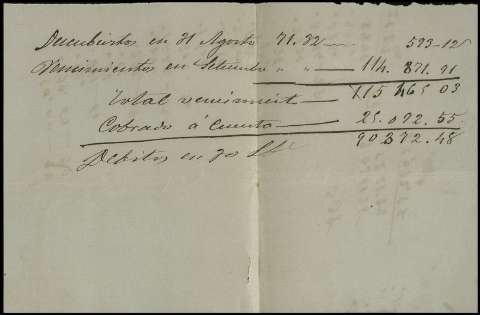 Descubiertos en 31 Agosto — 593-12
Vencimientos en Setiembre " " — 114.871.91
Total vencimient — 115 465 03
Cobrado á Cuenta — 25.092.55
Debitos en 30 90372.48